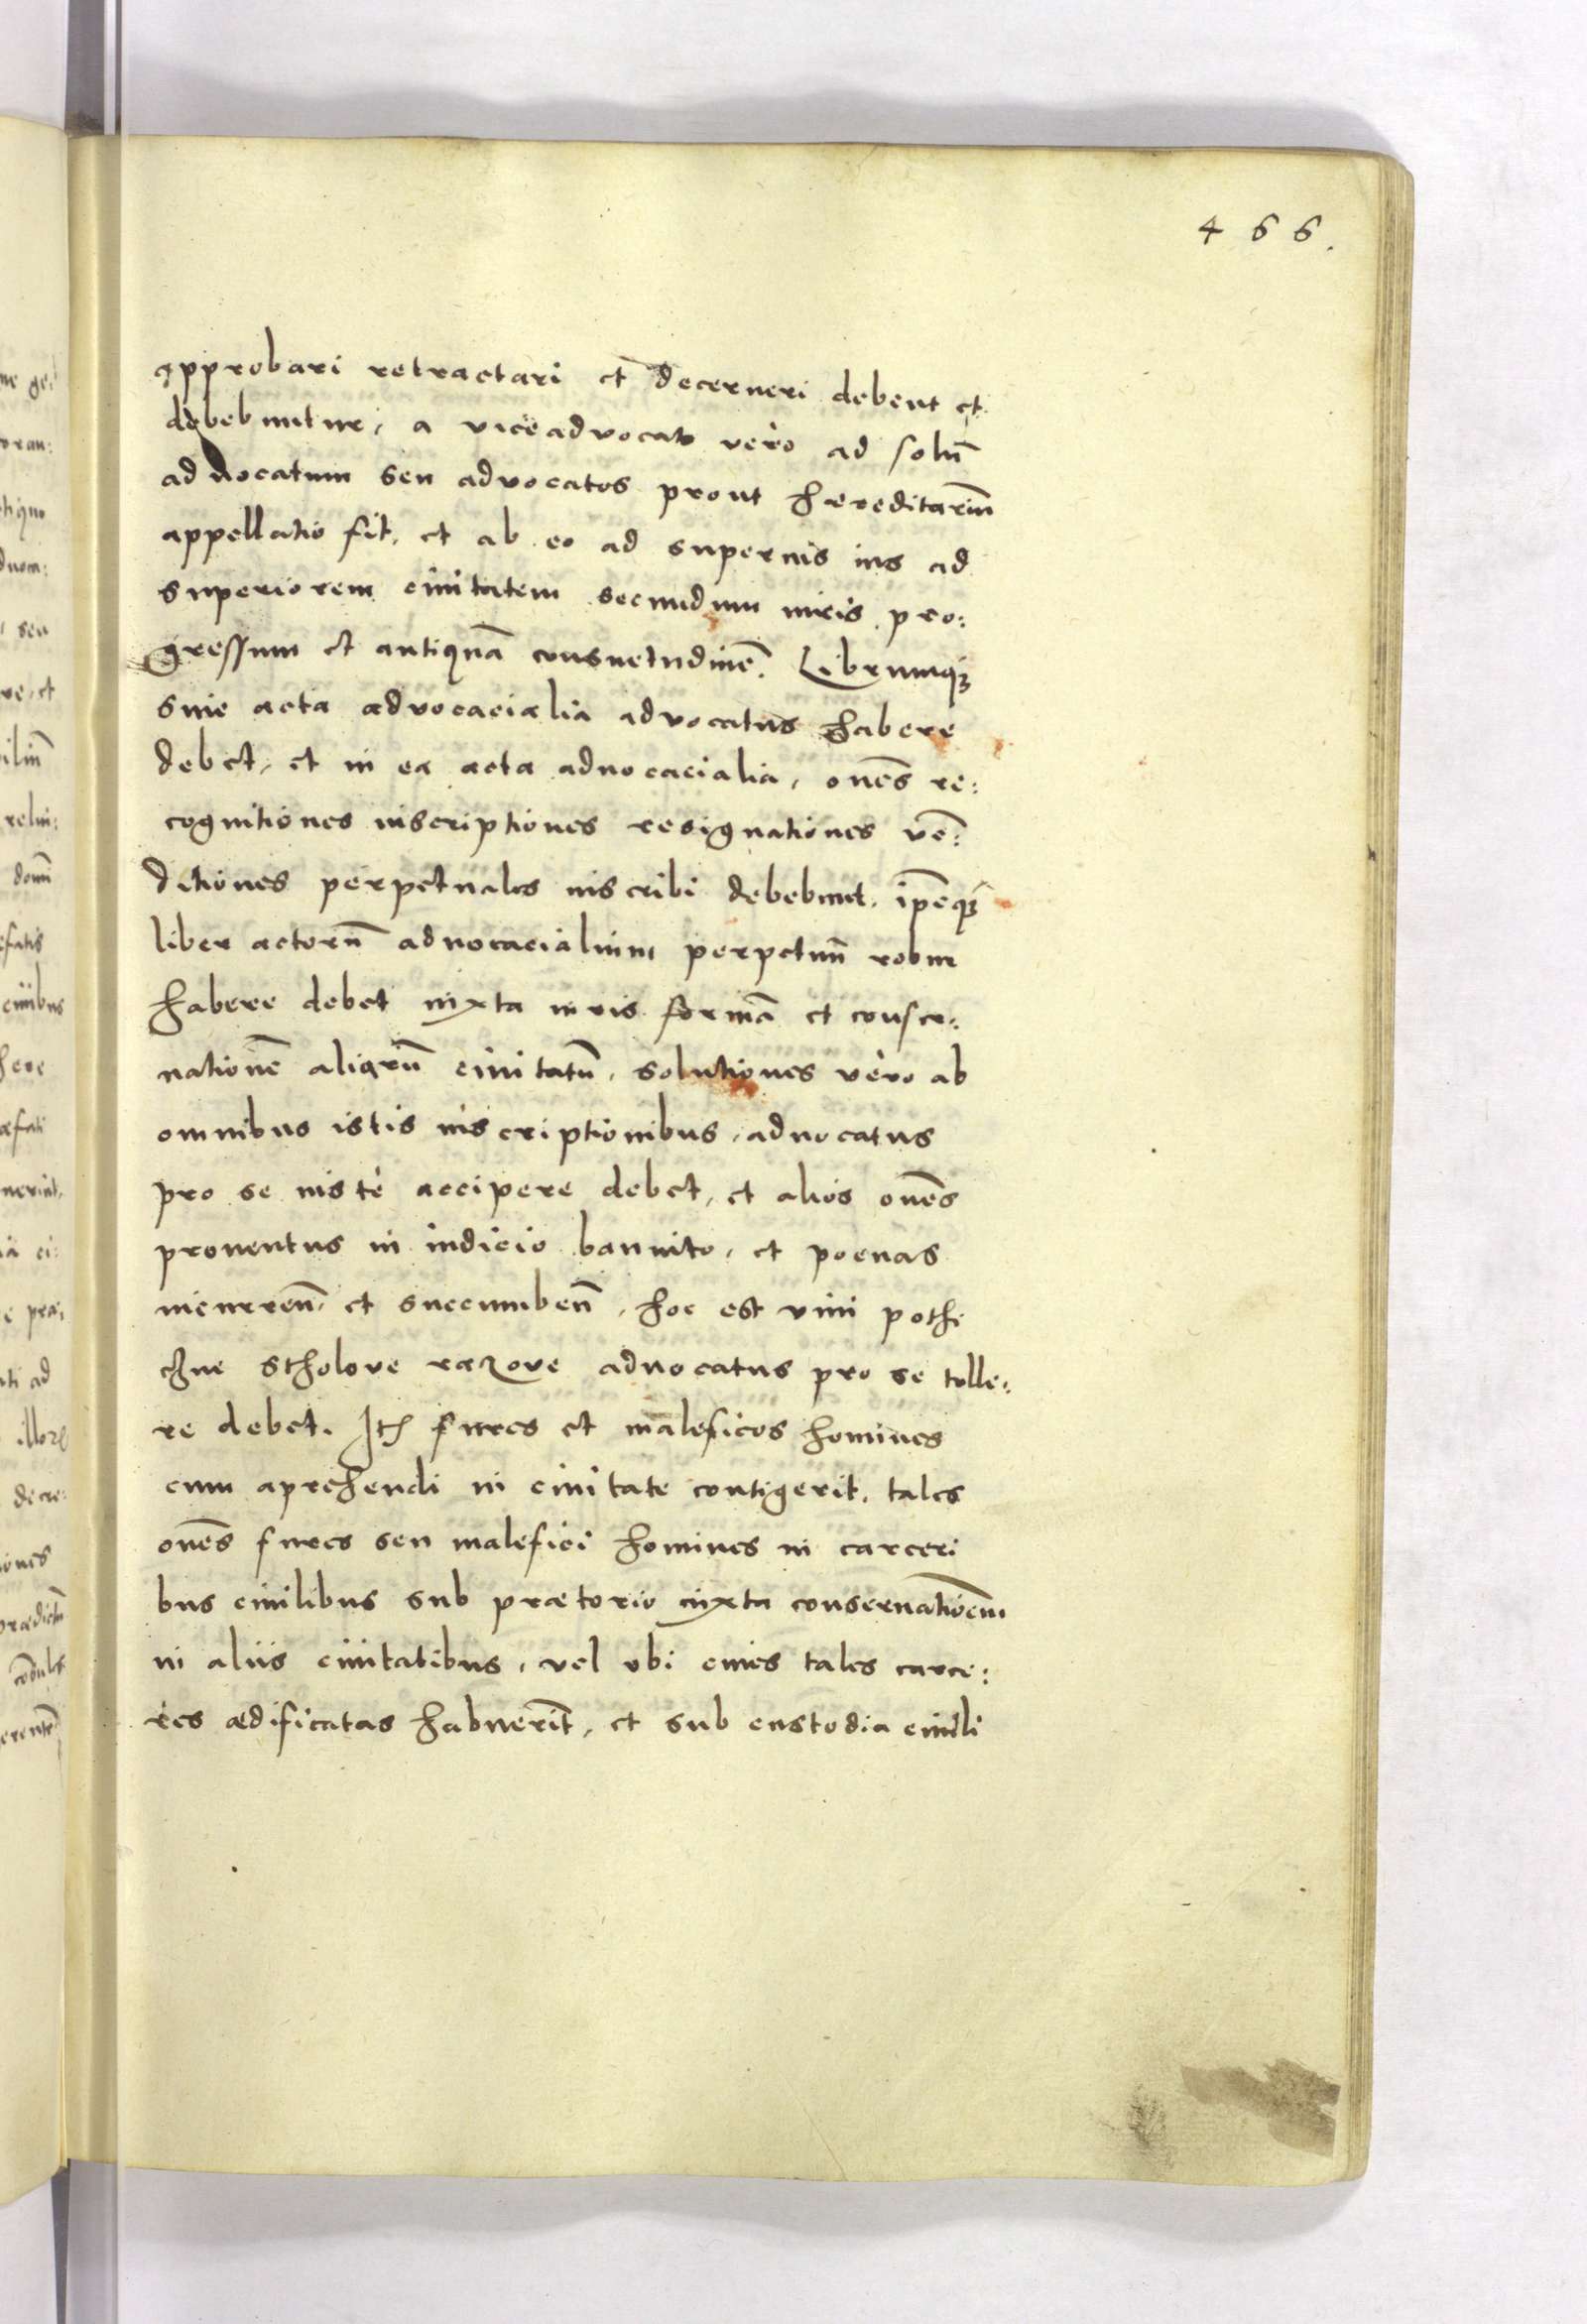 466.
approbari retractari et decerneri debent et
debebuntur, a viceadvocato vero ad solũ
advocatum seu advocatos prout hereditariũ
appellatio fit, et ab eo ad supernis ius ad
superiorem ciuitatem secundum iuris pro:
gressum et antiquã consuetudinẽ. Librumq;
siue acta advocacialia advocatus habere
debet, et in ea acta aduocacialia, oñes re:
cognitiones inscriptiones resignationes vẽ:
ditiones perpetuales inscribi debebunt, ip̃eq;
liber actorũ aduocacialium perpetuũ robur
habere debet iuxta iuris formã et conser:
uationẽ aliarũ ciuitatũ, solutiones vero ab
omnibus istis inscriptionibus, aduocatus
pro se iuste accipere debet, et alios oñes
prouentus in iudicio bannito, et poenas
incurreñ et succumbeñ, hoc est vini pothi
cҥne stholove razove aduocatus pro se tolle:
re debet. Itẽ fures et maleficos homines
cum aprehendi in ciuitate contigerit, tales
oñes fures seu malefici homines in carceri
bus ciuilibus sub prætorio iuxta conseruatioẽm
in aliis ciuitatibus, vel vbi ciues tales carce:
res ædificatas habuerĩt, et sub custodia ciuili